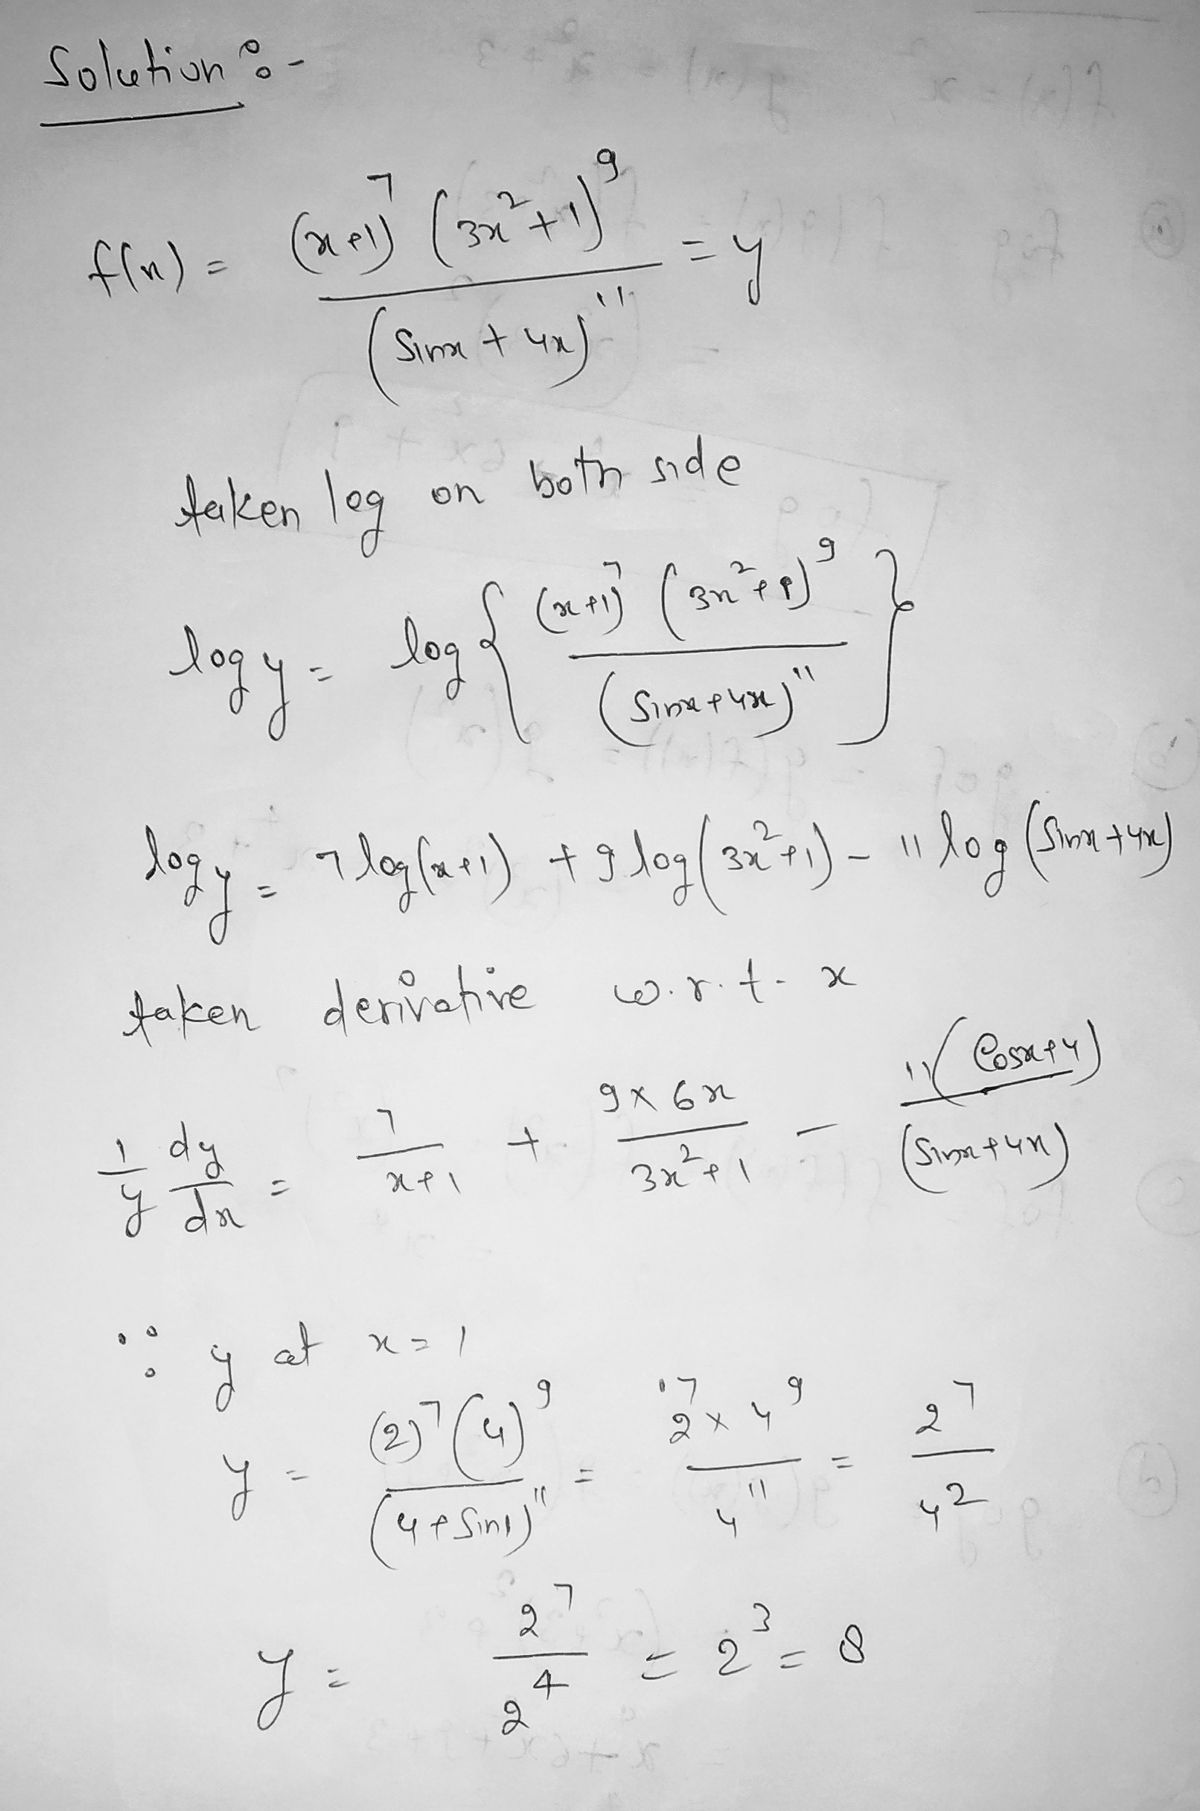 Solution :-
f(x) = (x+1)^7 (3x^2+1)^9 / (Sinx + 4x)^11 = y
taken log on both side
log y = log { (x+1)^7 (3x^2+1)^9 / (Sinx+4x)^11 }
log y = 7 log(x+1) + 9 log(3x^2+1) - 11 log (Sinx+4x)
taken derivative w.r.t. x
1/y dy/dx = 7/(x+1) + 9×6x/(3x^2+1) - 11(Cosx+4)/(Sinx+4x)
∵ y at x=1
y = (2)^7 (4)^9 / (4+Sin1)^11 = 2^7 × 4^9 / 4^11 = 2^7 / 4^2
y = 2^7 / 2^4 = 2^3 = 8